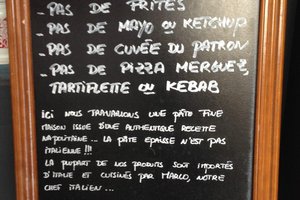 - PAS DE FRITES
- PAS DE MAYO OU KETCHUP
- PAS DE CUVÉE DU PATRON
- PAS DE PIZZA MERGUEZ,
TARTIFLETTE OU KEBAB
ICI NOUS TRAVAILLONS UNE PÂTE FINE
MAISON ISSUE D'UNE AUTHENTIQUE RECETTE
NAPOLITAINE... LA PÂTE ÉPAISSE N'EST PAS
ITALIENNE !!!
LA PLUPART DE NOS PRODUITS SONT IMPORTÉS
D'ITALIE ET CUISINÉS PAR MARCO, NOTRE
CHEF ITALIEN...